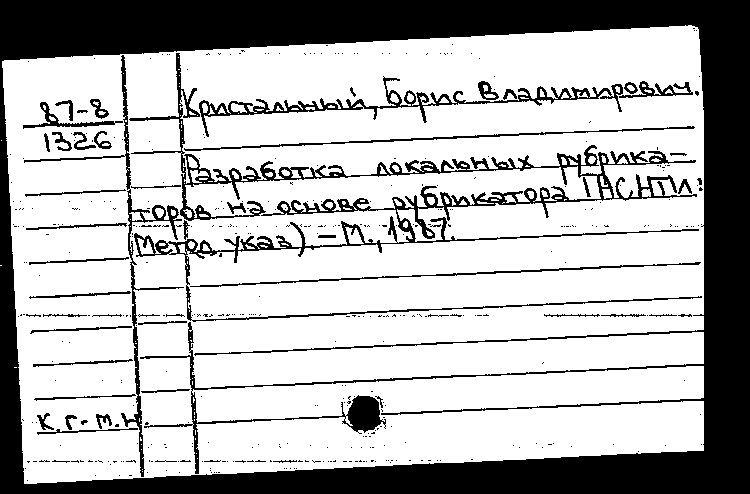 87-8
1326
Кристальный, Борис Владимирович.
Разработка локальных рубрика-
торов на основе рубрикатора ГАСНТИ:
(Метод. указ). - М., 1987.
к.г.-м.н.